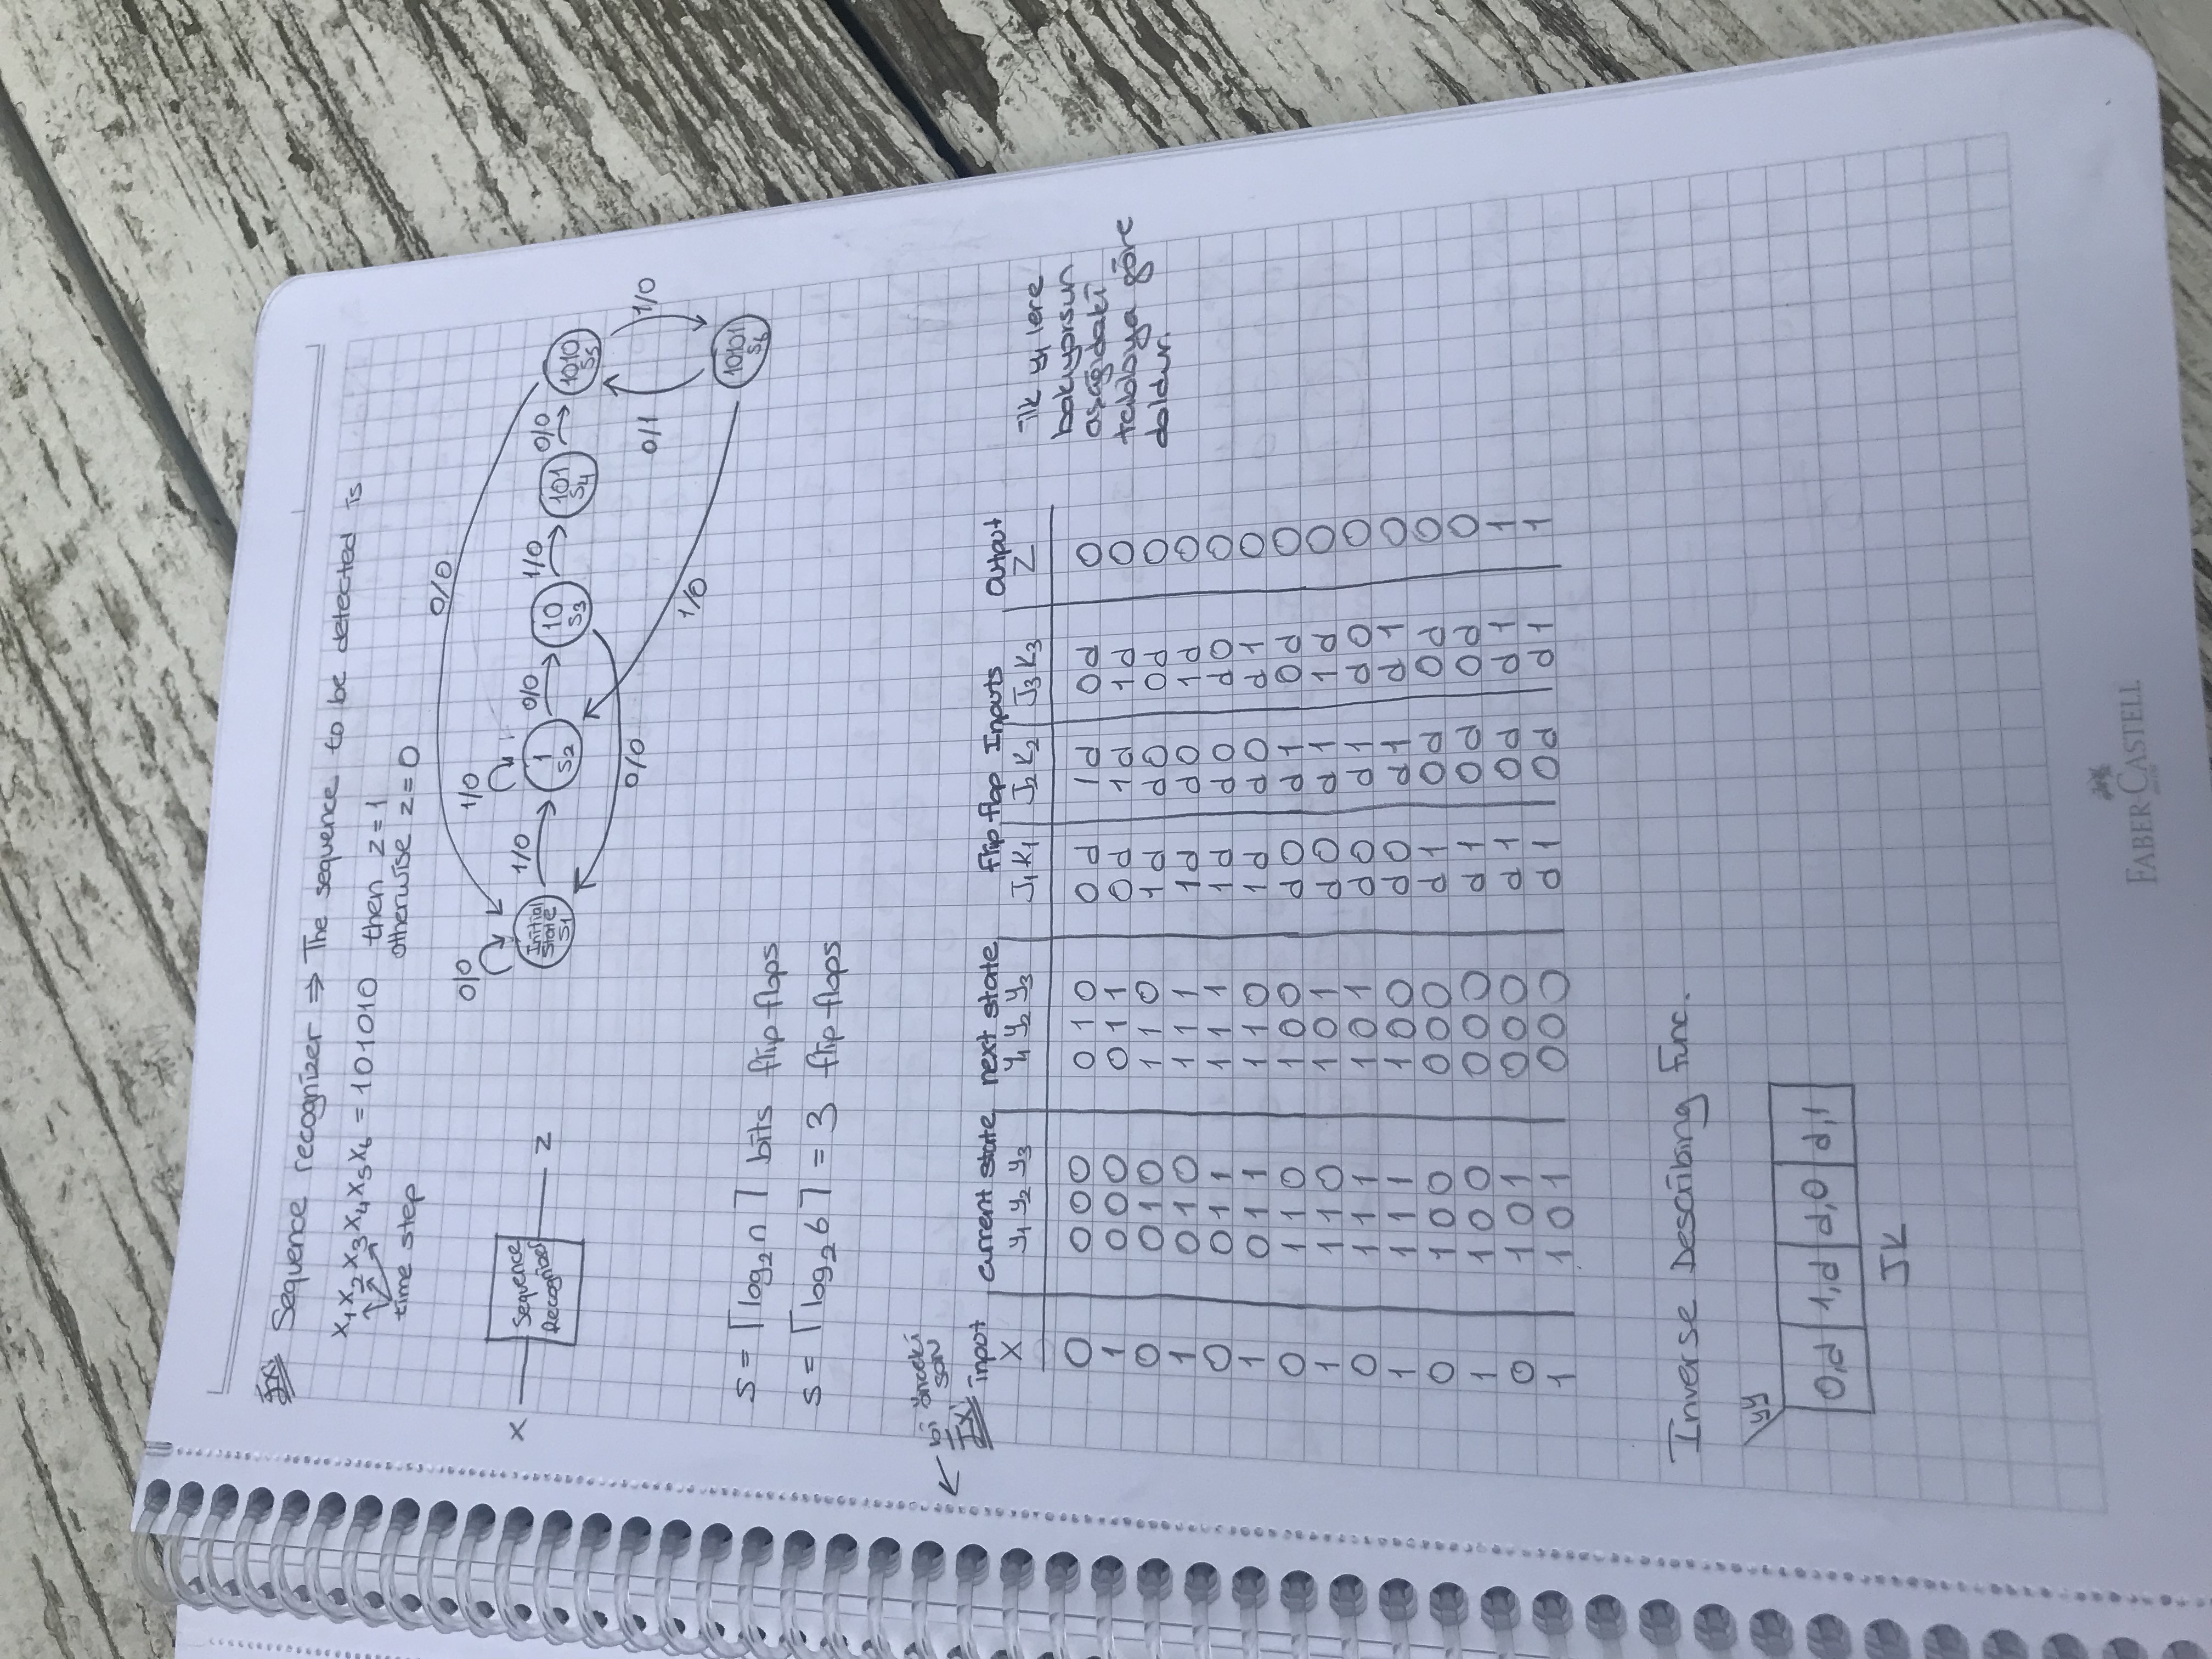 Ex: Sequence recognizer ⇒ The sequence to be detected is
X₁X₂X₃X₄X₅X₆ = 101010 then z=1
time step otherwise z=0
X
Sequence
Recognizer
Z
0/0
0/0
1/0
Initial
state
S₁
1/0
1
S₂
0/0
10
S₃
1/0
101
S₄
0/0
1010
S₅
0/0
1/0
0/1
1/0
10101
S₆
s = ⌈log₂n⌉ bits flip flops
s = ⌈log₂6⌉ = 3 flip-flops
← bi önceki
son
Ex:
input current state next state flip flop Inputs output
X y₁ y₂ y₃ y₁ y₂ y₃ J₁ K₁ J₂ K₂ J₃ K₃ Z
0 000 010 0d 1d 0d 0
1 000 011 0d 1d 1d 0
0 010 110 1d d0 0d 0
1 010 111 1d d0 1d 0
0 011 111 1d d0 d0 0
1 011 110 1d d0 d1 0
0 110 100 d0 d1 0d 0
1 110 101 d0 d1 1d 0
0 111 101 d0 d1 d0 0
1 111 100 d0 d1 d1 0
0 100 000 d1 0d 0d 0
1 100 000 d1 0d 0d 0
0 101 000 d1 0d d1 1
1 101 000 d1 0d d1 1
ilk y₁ lere
bakıyorsun
aşağıdaki
tabloya göre
doldur.
Inverse Describing Func.
yy
0,d 1,d d,0 d,1
JK
FABER-CASTELL